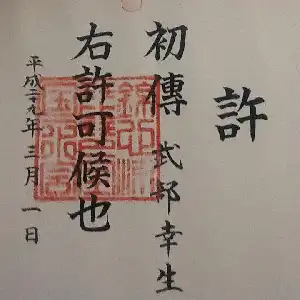 許
初傳 式部幸生
右許可候也
平成二十九年 三月 一日